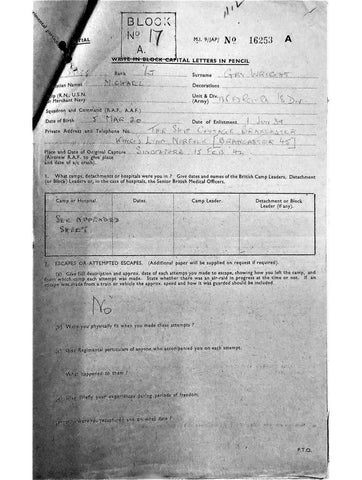 BLOCK
Nº 17
A.
M.I. 9/JAP/ Nº 16253 A
WRITE IN BLOCK CAPITAL LETTERS IN PENCIL
Rank Lt Surname WRIGHT
Name MICHAEL Decorations
(R.N., U.S.N. or Merchant Navy) Unit & Div. (Army)
Squadron and Command (R.A.F., A.A.F.)
Date of Birth 5 MAR 20 Date of Enlistment 1 JUN 39
Private Address and Telephone No. THE SHIP COTTAGE BRANCASTER
KINGS LYNN NORFOLK [BRANCASTER 45]
Place and Date of Original Capture SINGAPORE 15 FEB 42
(Aircrew R.A.F. to give place and date of a/c crash).
1. What camps, detachments or hospitals were you in? Give dates and names of the British Camp Leaders, Detachment (or Block) Leaders or, in the case of hospitals, the Senior British Medical Officers.
Camp or Hospital. Dates. Camp Leader. Detachment or Block Leader (if any).
SEE APPENDED
SHEET
2. ESCAPES OR ATTEMPTED ESCAPES. (Additional paper will be supplied on request if required).
(i) Give full description and approx. date of each attempt you made to escape, showing how you left the camp, and from which camp each attempt was made. State whether there was an air-raid in progress at the time or not. If an escape was made from a train or vehicle the approx. speed and how it was guarded should be included.
No
Were you physically fit when you made these attempts?
Give Regimental particulars of anyone who accompanied you on each attempt.
What happened to them?
Give briefly your experiences during periods of freedom.
P.T.O.